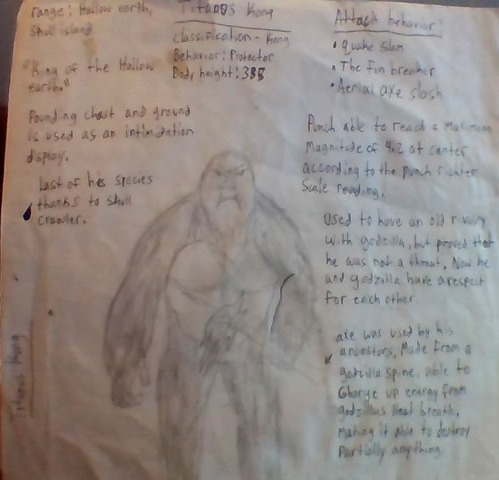 range: Hallow earth,
Skull island
"King of the Hallow
earth."
Pounding chest and ground
is used as an intimidation
display.
Last of his species
thanks to skull
crawler.
Titanus Kong
Titanus Kong
classification - Kong
Behavior: Protector
Body height: 335
Attack behavior:
• Quake slam
• The fin breaker
• Aerial axe slash
Punch able to reach a Maximum
Magnitude of 9.2 at center
according to the punch richter
Scale reading.
Used to have an old rivalry
with godzilla, but proved that
he was not a threat. Now he
and godzilla have a respect
for each other.
axe was used by his
ancestors, Made from a
godzilla spine, able to
Charge up energy from
godzillas heat breath,
making it able to destroy
Partially anything